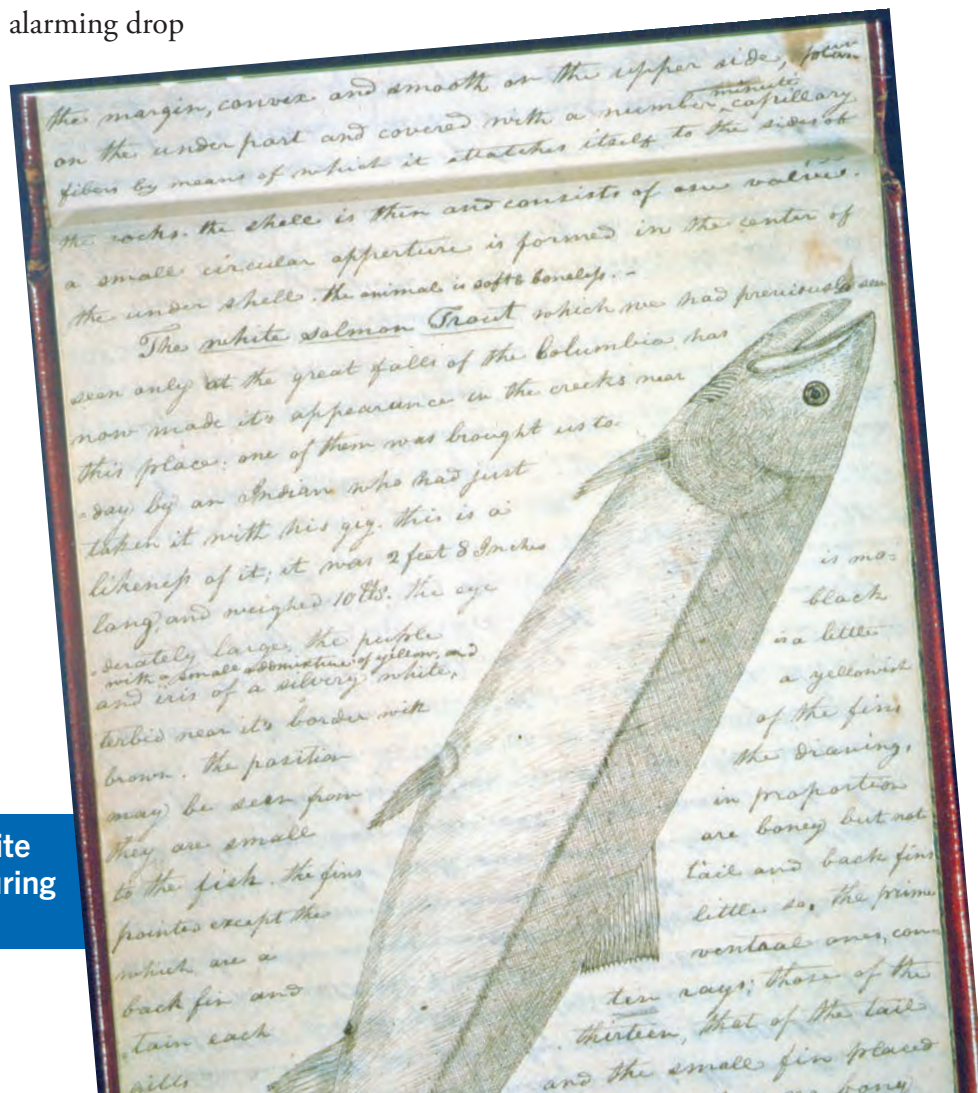 alarming drop
the margin, convex and smooth on the upper side,
on the under part and covered with a number minute capillary
fibers by means of which it attatches itself to the sides of
the rocks. the shell is thin and consists of one valve.
a small circular apperture is formed in the center of
the under shell. the animal is soft & boneless. -
The white salmon Trout which we had previously
seen only at the great falls of the Columbia has
now made it's appearance in the creeks near
this place. one of them was brought us to
-day by an Indian who had just
taken it with his gig. this is a
likeness of it; it was 2 feet 8 Inches
long, and weighed 10 lbs. the eye is mo-
-derately large, the puple black
with a small admixture of yellow, and
and iris of a silvery white, is a little
terbid near it's border with a yellowish
brown. the position of the fins
may be seen from the drawing,
they are small in proportion
to the fish. the fins are boney but not
pointed except the tail and back fins
which are a little so, the prime
back fin and ventral ones, con-
-tain each ten rays; those of the
gills thirteen, that of the tail
and the small fin placed
bony
ite
uring